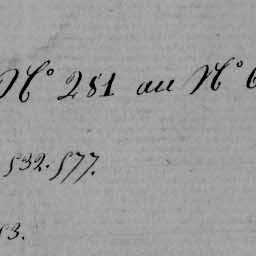 N° 281 au N° 6
532. 577.
3.